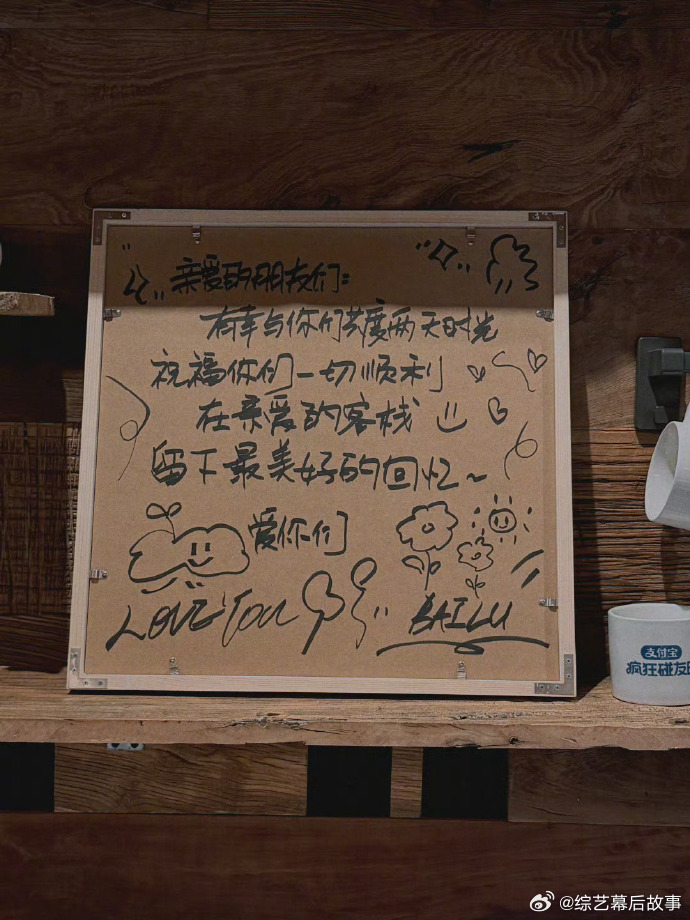 亲爱的朋友们:
有幸与你们共度两天时光
祝福你们一切顺利
在亲爱的客栈
留下最美好的回忆~
爱你们
LOVE You
BAILU
支付宝
疯狂碰友
@综艺幕后故事